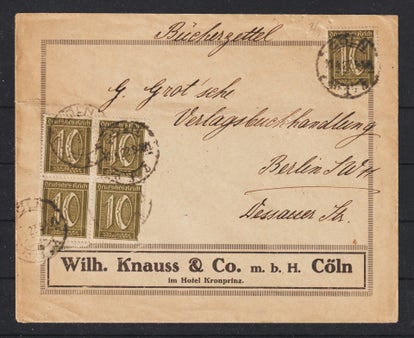 Bücherzettel
Deutsches Reich
10
G. Grot'sche
Verlagsbuchhandlung
Berlin SW11
Dessauer Str.
Deutsches Reich Deutsches Reich
10 10
Deutsches Reich Deutsches Reich
10 10
Wilh. Knauss & Co. m. b. H. Cöln
im Hotel Kronprinz.